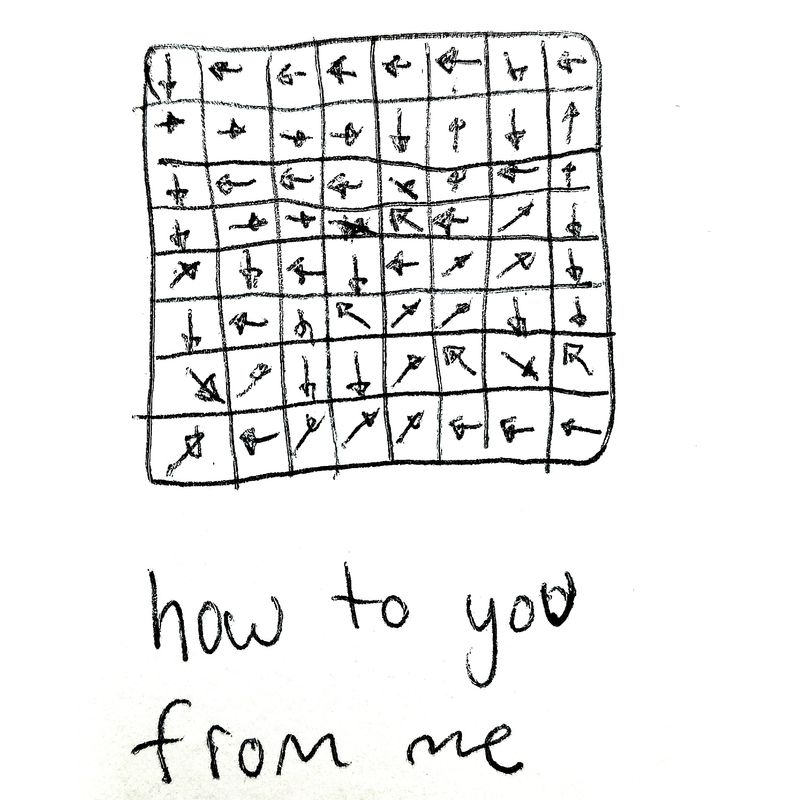 how to you
from me